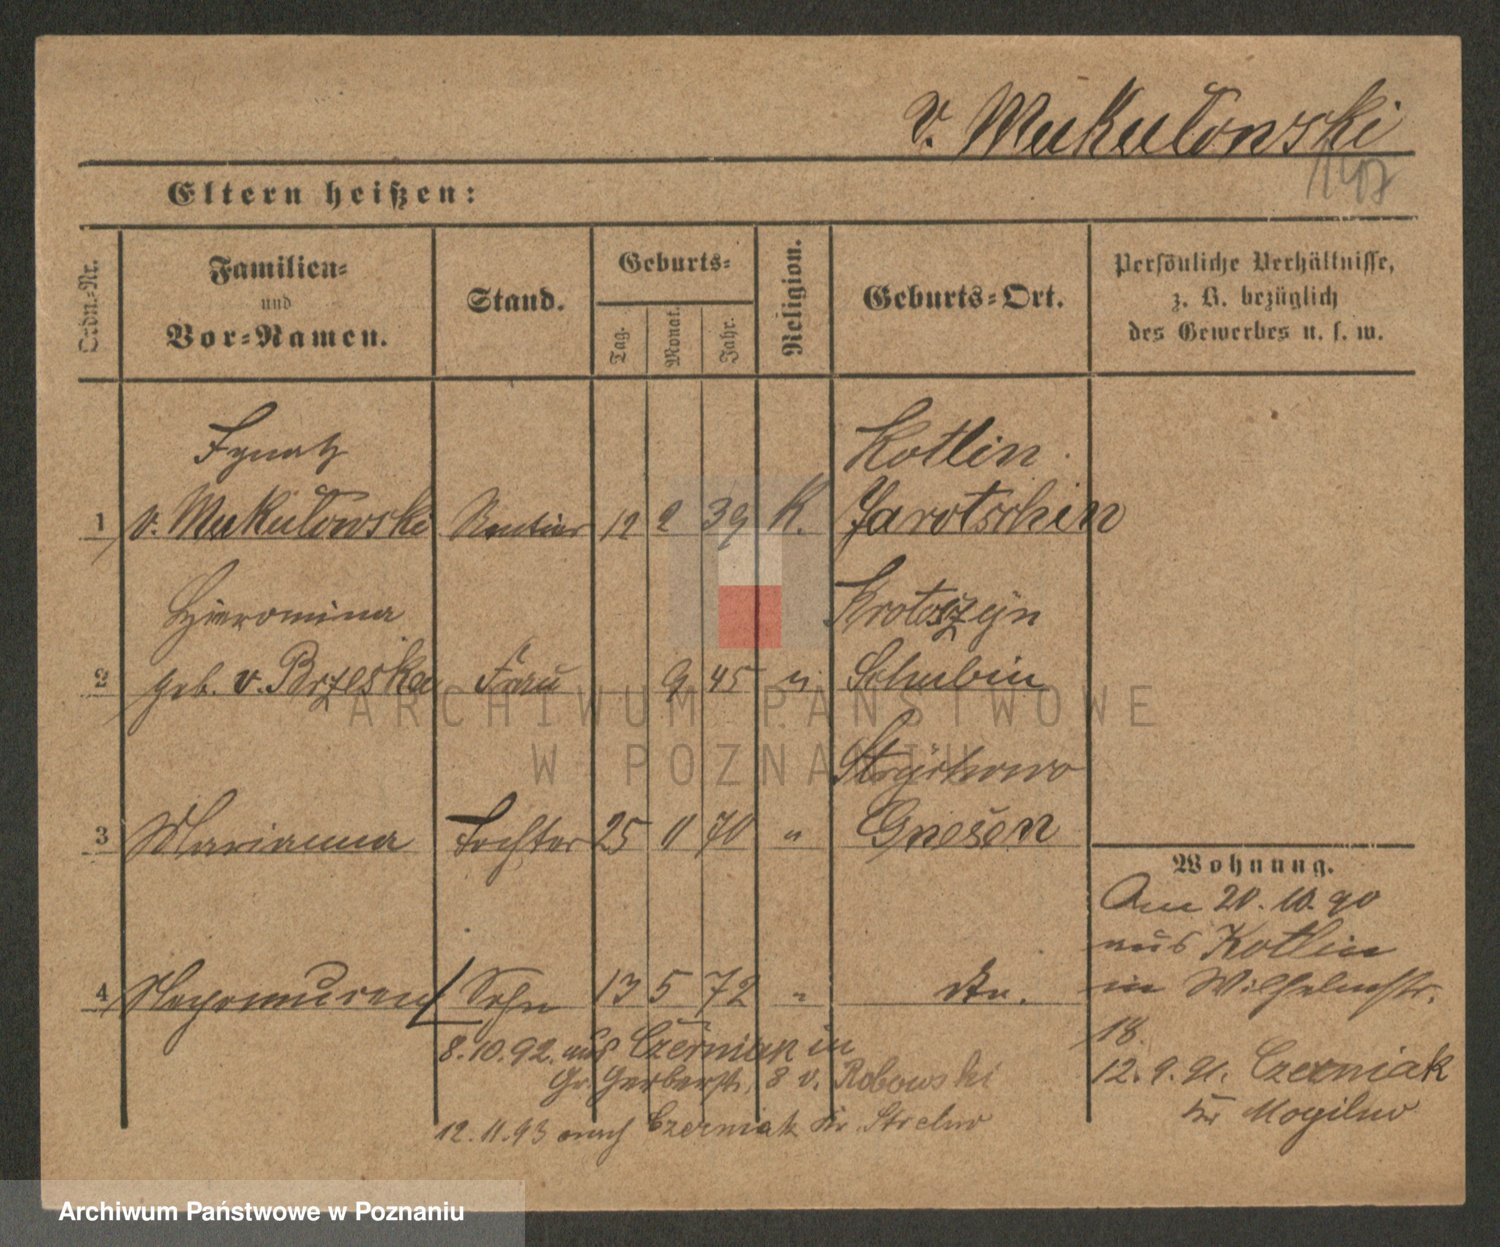 v. Mukułowski
Eltern heißen:
Ordn.-Nr.
Familien-
und
Vor-Namen.
Stand.
Geburts-
Tag.
Monat.
Jahr.
Religion.
Geburts-Ort.
Persönliche Verhältnisse,
z. B. bezüglich
des Gewerbes u. s. w.
Ignatz
Kotlin
1 v. Mukułowski Rentier 12 2 39 K. Jarotschin
Hieromina
Krotoszyn
2 geb. v. Brzeska Frau 9 45 " Schubin
3 Marianna Tochter 25 11 70 " Gnesen
Wohnung.
Am 20.10.90
aus Kotlin
in Wilhelmstr.
18.
4 Sohn 13 5 72 " do.
8.10.92. aus Czerniak in
Gr. Gerberstr. 8 v. Robowski
12.11.93 nach Czerniak Kr. Strelno
12.9.91. Czerniak
Kr Mogilno
ARCHIWUM PAŃSTWOWE
W POZNANIU
Archiwum Państwowe w Poznaniu